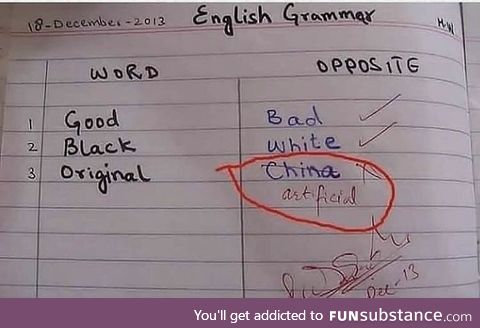 18-December-2013 English Grammar H.W
WORD OPPOSITE
1 Good Bad
2 Black White
3 Original China
artificial
Dec-13
You'll get addicted to FUNsubstance.com